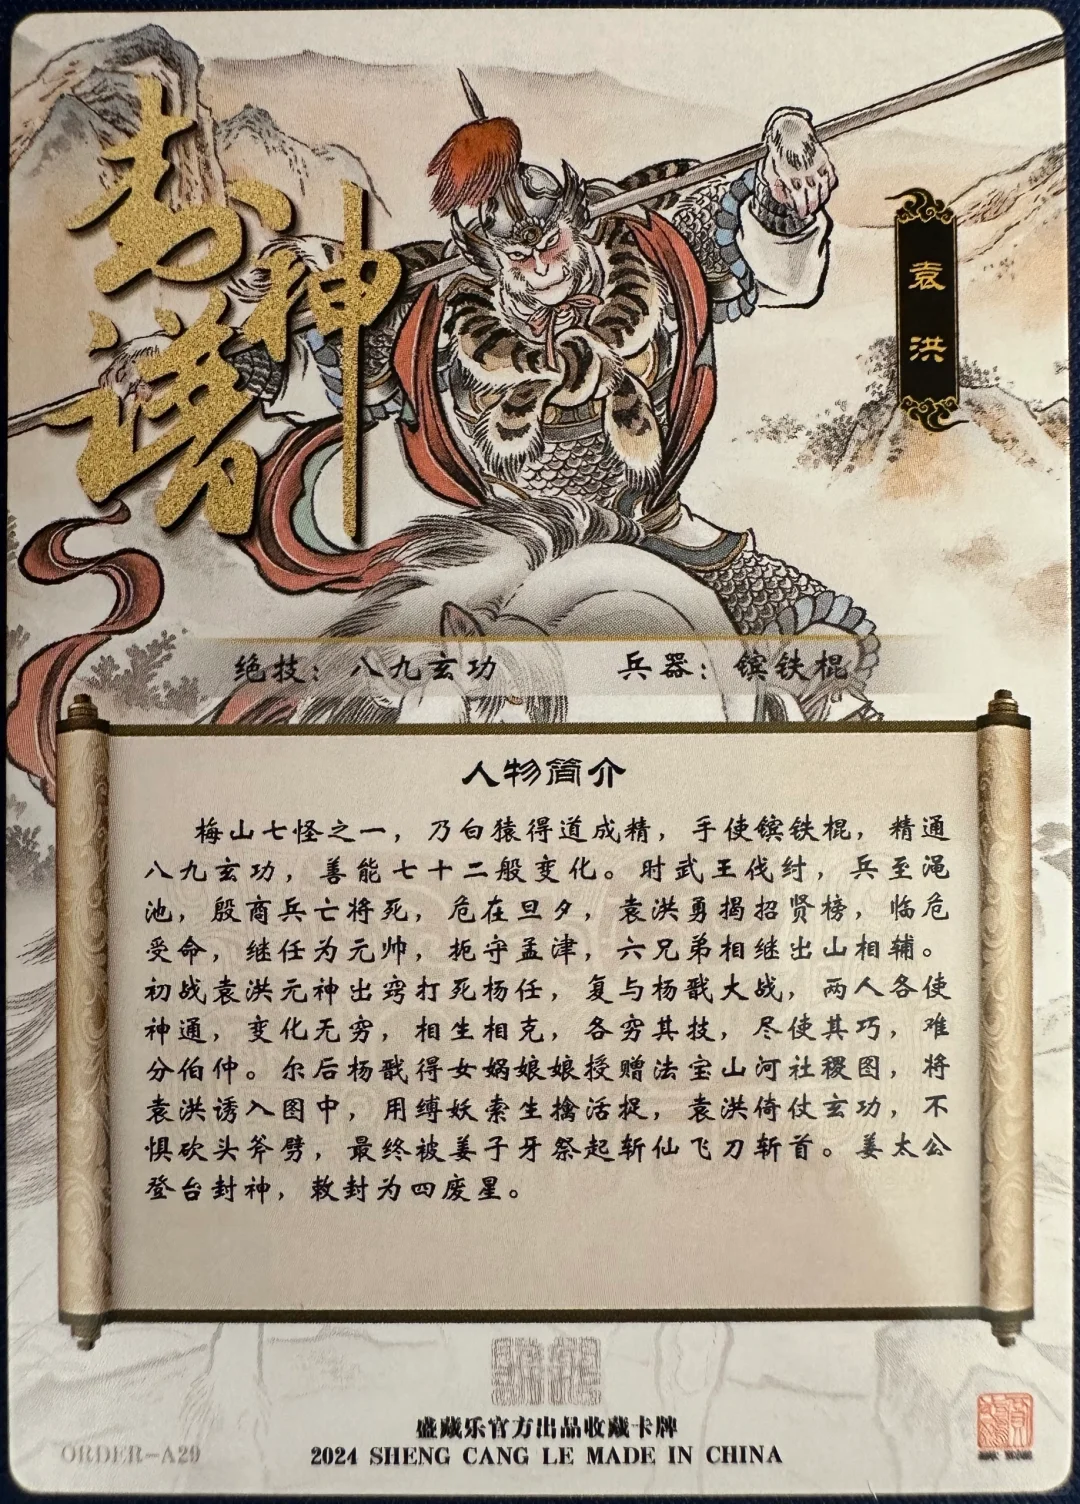 封神
谱
袁洪
绝技：八九玄功 兵器：镔铁棍
人物简介
梅山七怪之一，乃白猿得道成精，手使镔铁棍，精通
八九玄功，善能七十二般变化。时武王伐纣，兵至渑
池，殷商兵亡将死，危在旦夕，袁洪勇揭招贤榜，临危
受命，继任为元帅，扼守孟津，六兄弟相继出山相辅。
初战袁洪元神出窍打死杨任，复与杨戬大战，两人各使
神通，变化无穷，相生相克，各穷其技，尽使其巧，难
分伯仲。尔后杨戬得女娲娘娘授赠法宝山河社稷图，将
袁洪诱入图中，用缚妖索生擒活捉，袁洪倚仗玄功，不
惧砍头斧劈，最终被姜子牙祭起斩仙飞刀斩首。姜太公
登台封神，敕封为四废星。
盛藏乐官方出品收藏卡牌
ORDER-A29
2024 SHENG CANG LE MADE IN CHINA